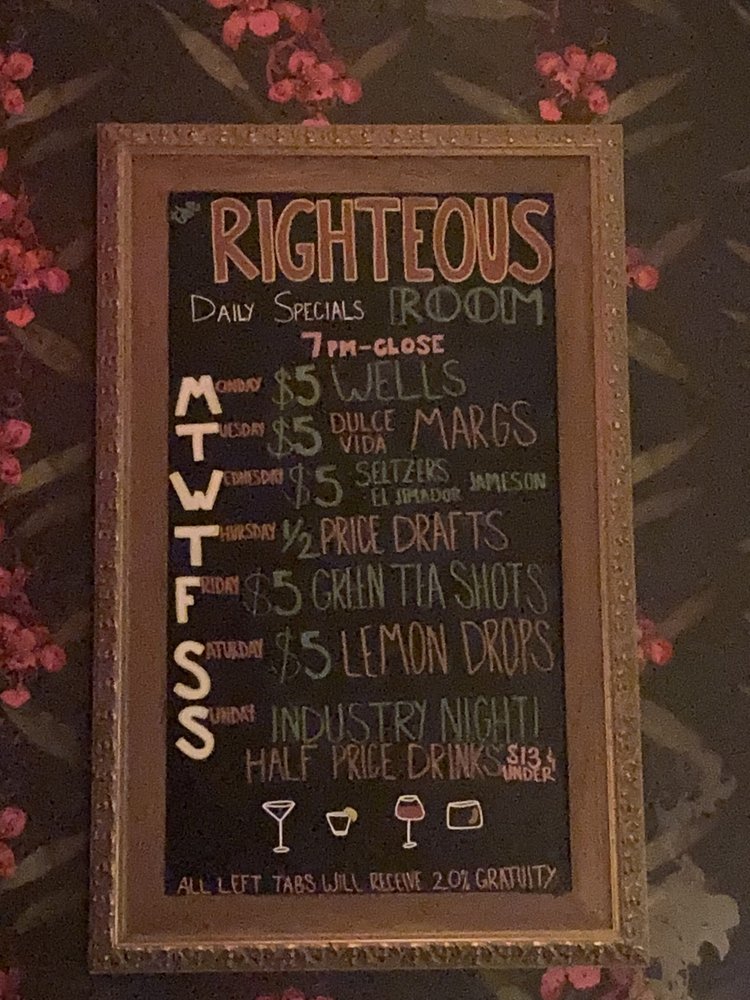 the RIGHTEOUS
DAILY SPECIALS ROOM
7PM-CLOSE
MONDAY $5 WELLS
TUESDAY $5 DULCE VIDA MARGS
WEDNESDAY $5 SELTZERS EL JIMADOR JAMESON
THURSDAY 1/2 PRICE DRAFTS
FRIDAY $5 GREEN TEA SHOTS
SATURDAY $5 LEMON DROPS
SUNDAY INDUSTRY NIGHT!
HALF PRICE DRINKS $13 & UNDER
ALL LEFT TABS WILL RECEIVE 20% GRATUITY